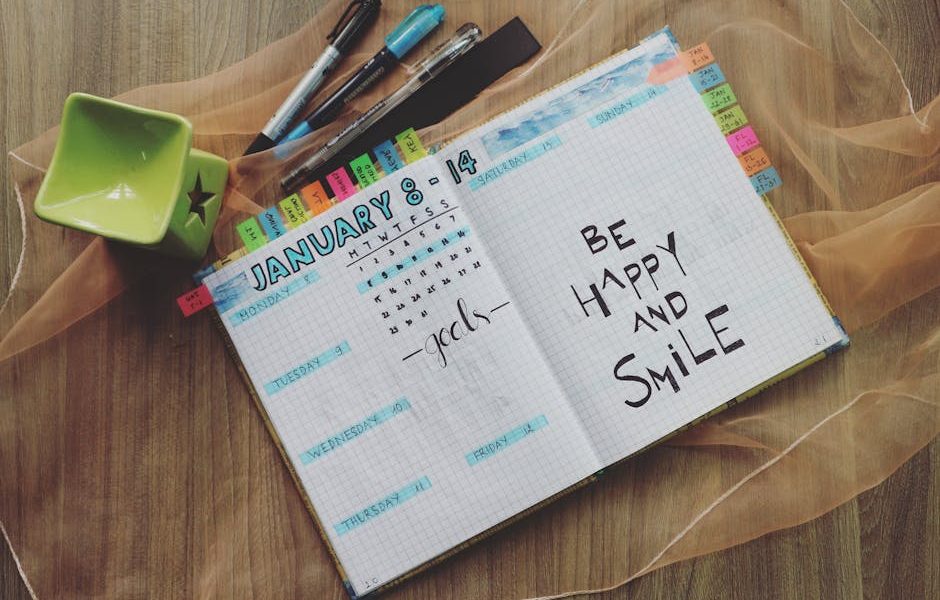 KEY
JANUARY 8-14
M T W T F S S
1 2 3 4 5 6 7
8 9 10 11 12 13 14
15 16 17 18 19 20 21
22 23 24 25 26 27 28
29 30 31
MONDAY 8
-goals-
TUESDAY 9
WEDNESDAY 10
THURSDAY 11
FRIDAY 12
20
SATURDAY 13
SUNDAY 14
BE
HAPPY
AND
SMiLE
21
JAN
8-14
JAN
15-21
JAN
22-28
JAN
29-31